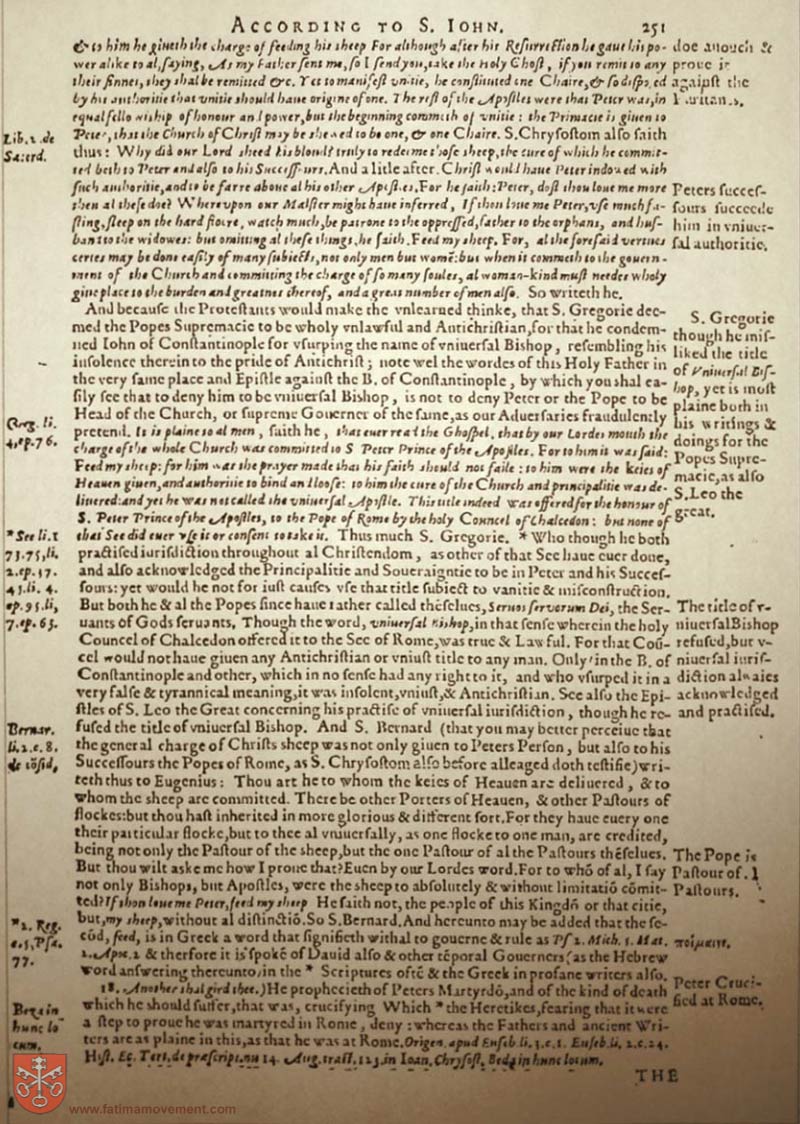 ACCORDING TO S. IOHN. 251
& to him he giueth the charge of feeding his sheep For although after his Resurrection he gaue his po-
wer alike to al, saying, As my Father sent me, so I send you, take the Holy Ghost, if you remit to any
their sinnes, they shal be remitted &c. Yet to manifest vnitie, he constituted one Chaire, & so disposed
by his authoritie that vnitie should haue origine of one. The rest of the Apostles were that Peter was, in
equal fellowship of honour and power, but the beginning commeth of vnitie: the Primacie is giuen to
Peter, that the Church of Christ may be shewed to be one, & one Chaire. S. Chrysostom also saith
thus: Why did our Lord sheed his bloud? truly to redeeme those sheep, the cure of which he commit-
ted both to Peter and also to his Successours. And a litle after. Christ would haue Peter indowed with
such authoritie, and to be farre aboue al his other Apostles, For he saith: Peter, dost thou loue me more
then al these doe? Whereupon our Maister might haue inferred, If thou loue me Peter, vse much fa-
sting, sleep on the hard floore, watch much, be patrone to the oppressed, father to the orphans, and hus-
band to the widowes: but omitting al these things, he saith, Feed my sheep. For, al the foresaid vertues
certes may be done easily of many subiects, not only men but womē: but when it commeth to the gouern-
ment of the Church and committing the charge of so many soules, al woman-kind must needes wholy
giue place to the burden and greatnes thereof, and a great number of men also. So writeth he.
And because the Protestants would make the vnlearned thinke, that S. Gregorie dee-
med the Popes Supremacie to be wholy vnlawful and Antichristian, for that he condem-
ned Iohn of Constantinople for vsurping the name of vniuersal Bishop, resembling his
insolence therein to the pride of Antichrist; note wel the wordes of this Holy Father in
the very same place and Epistle against the B. of Constantinople, by which you shal ea-
sily see that to deny him to be vniuersal Bishop, is not to deny Peter or the Pope to be
Head of the Church, or supreme Gouerner of the same, as our Aduersaries fraudulently
pretend. It is plaine to al men, saith he, that euer read the Ghospel, that by our Lordes mouth the
charge of the whole Church was committed to S Peter Prince of the Apostles. For to him it was said:
Feed my sheep: for him was the prayer made that his faith should not faile: to him were the keies of
Heauen giuen, and authoritie to bind and loose: to him the cure of the Church and principalitie was de-
liuered: and yet he was not called the vniuersal Apostle. This title indeed was offered for the honour of
S. Peter Prince of the Apostles, to the Pope of Rome by the holy Councel of Chalcedon: but none of
that See did euer vse it or consent to take it. Thus much S. Gregorie. * Who though he both
practised iurisdiction throughout al Christendom, as other of that See haue euer done,
and also acknowledged the Principalitie and Soueraigntie to be in Peter and his Succes-
sours: yet would he not for iust causes vse that title subiect to vanitie & misconstruction.
But both he & al the Popes since haue rather called thēselues, Seruos seruorum Dei, the Ser-
uants of Gods seruants. Though the word, vniuersal Bishop, in that sense wherein the holy
Councel of Chalcedon offered it to the See of Rome, was true & Lawful. For that Coū-
cel would not haue giuen any Antichristian or vniust title to any man. Only in the B. of
Constantinople and other, which in no sense had any right to it, and who vsurped it in a
very false & tyrannical meaning, it was insolent, vniust, & Antichristian. See also the Epi-
stles of S. Leo the Great concerning his practise of vniuersal iurisdiction, though he re-
fused the title of vniuersal Bishop. And S. Bernard (that you may better perceiue that
the general charge of Christs sheep was not only giuen to Peters Person, but also to his
Successours the Popes of Rome, as S. Chrysostom also before alleaged doth testifie) wri-
teth thus to Eugenius: Thou art he to whom the keies of Heauen are deliuered, & to
whom the sheep are committed. There be other Porters of Heauen, & other Pastours of
flockes: but thou hast inherited in more glorious & different sort. For they haue euery one
their particular flocke, but to thee al vniuersally, as one flocke to one man, are credited,
being not only the Pastour of the sheep, but the one Pastour of al the Pastours thēselues.
But thou wilt aske me how I proue that? Euen by our Lordes word. For to whō of al, I say
not only Bishops, but Apostles, were the sheep so absolutely & without limitatiō cōmit-
ted? If thou loue me Peter, feed my sheep He saith not, the people of this Kingdō or that citie,
but, my sheep, without al distinctiō. So S. Bernard. And hereunto may be added that the se-
cōd, feed, is in Greek a word that signifieth withal to gouerne & rule as Ps 2. Mich. 5. Mat.
2. Apoc. 2 & therfore it is spokē of Dauid also & other tēporal Gouerners (as the Hebrew
word answering thereunto, in the * Scriptures oftē & the Greek in profane writers also.
18. Another shal gird thee.) He prophecieth of Peters Martyrdō, and of the kind of death
which he should suffer, that was, crucifying Which * the Heretikes, fearing that it were
a step to proue he was martyred in Rome, deny: whereas the Fathers and ancient Wri-
ters are as plaine in this, as that he was at Rome. Origen. apud Euseb li. 3. c. 1. Euseb li. 2. c. 24.
Hist. Ec. Tert. de præscript. nu 14. Aug. tract. 123. in Ioan. Chrysost. Beda in hunc locum.
THE
Lib. 2. de
Sacerd.
Greg. li.
4. ep. 76.
* See li. 1
75. li.
2. ep. 37.
45. li. 4.
ep. 95. li.
7. ep. 63.
Bernar.
li. 2. c. 8.
de cōsid,
*2. Reg.
c. 5, Psa.
77.
Beza in
hunc lo
cum.
doe auouch &
proue it
against the
Puritans.
Peters succes-
sours succeede
him in vniuer-
sal authoritie.
S. Gregorie
though he mis-
liked the title
of Vniuersal Bis-
hop, yet is most
plaine both in
his writings &
doings for the
Popes Supre-
macie, as also
S. Leo the
great.
The title of v-
niuersal Bishop
refused, but v-
niuersal iuris-
diction alwaies
acknowledged
and practised.
The Pope is
Pastour of
Pastours.
ποίμαινε.
Peter Cruci-
fied at Rome.
www.fatimamovement.com